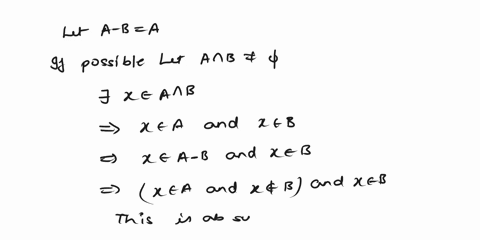 Let A-B=A
If possible Let A∩B ≠ ϕ
∃ x∈A∩B
⇒ x∈A and x∈B
⇒ x∈A-B and x∈B
⇒ (x∈A and x∉B) and x∈B
This is ab su